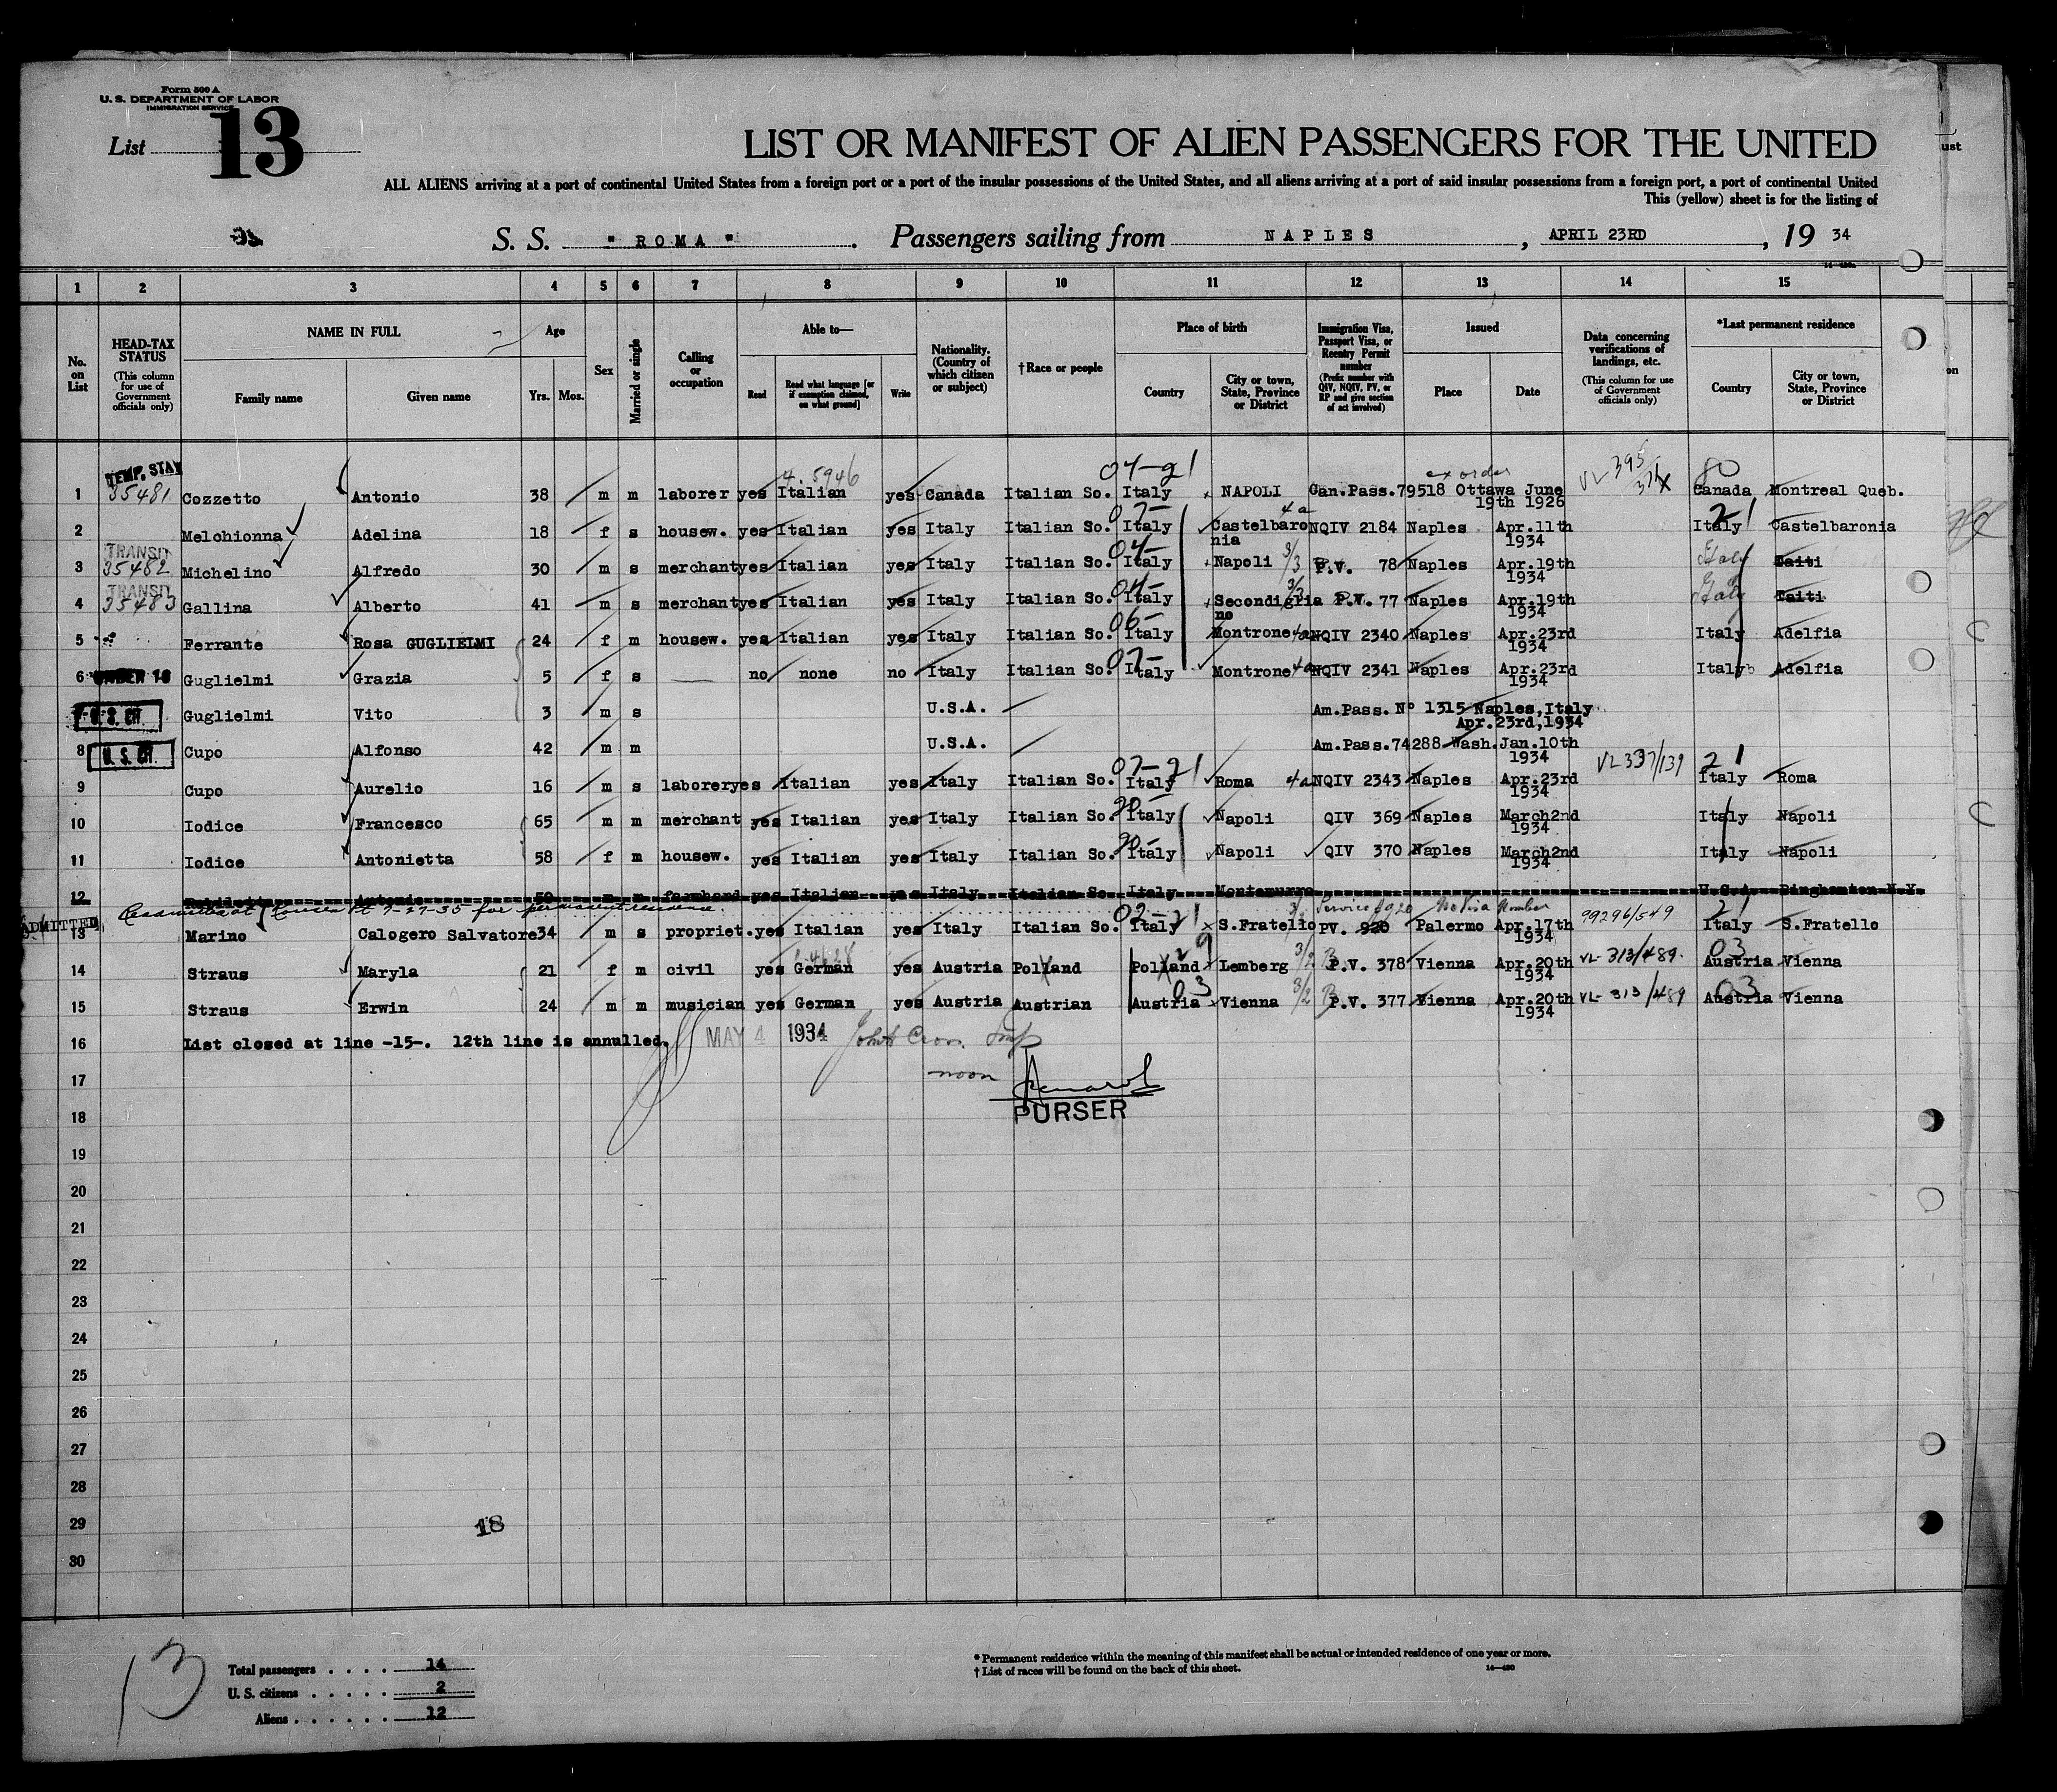 Form 500 A
U. S. DEPARTMENT OF LABOR
IMMIGRATION SERVICE
List 13
LIST OR MANIFEST OF ALIEN PASSENGERS FOR THE UNITED
ALL ALIENS arriving at a port of continental United States from a foreign port or a port of the insular possessions of the United States, and all aliens arriving at a port of said insular possessions from a foreign port, a port of continental United
This (yellow) sheet is for the listing of
S. S. " ROMA " . Passengers sailing from NAPLES , APRIL 23RD , 19 34
1 2 3 4 5 6 7 8 9 10 11 12 13 14 15
No. on List
HEAD-TAX STATUS (This column for use of Government officials only)
NAME IN FULL Family name Given name
Age Yrs. Mos.
Sex
Married or single
Calling or occupation
Able to— Read Read what language [or if exemption claimed, on what ground] Write
Nationality. (Country of which citizen or subject)
†Race or people
Place of birth Country City or town, State, Province or District
Immigration Visa, Passport Visa, or Reentry Permit number (Prefix number with QIV, NQIV, PV, or RP and give section of act involved)
Issued Place Date
Data concerning verifications of landings, etc. (This column for use of Government officials only)
*Last permanent residence Country City or town, State, Province or District
TEMP. STAY 4. 5946 04-21 ex order VL 395 80
1 35481 Cozzetto Antonio 38 m m laborer yes Italian yes Canada Italian So. Italy NAPOLI Can.Pass.79518 Ottawa June 19th 1926 Canada Montreal Queb.
2 Melchionna Adelina 18 f s housew. yes Italian yes Italy Italian So. 07- Italy Castelbaronia 4a NQIV 2184 Naples Apr.11th 1934 21 Italy Castelbaronia
TRANSIT
3 35482 Michelino Alfredo 30 m s merchant yes Italian yes Italy Italian So. 04- Italy Napoli 3/3 P.V. 78 Naples Apr.19th 1934 Italy Taiti
TRANSIT
4 35483 Gallina Alberto 41 m s merchant yes Italian yes Italy Italian So. 04- Italy Secondigliano 3/3 P.V. 77 Naples Apr.19th 1934 Italy Taiti
5 Ferrante Rosa GUGLIELMI 24 f m housew. yes Italian yes Italy Italian So. 06- Italy Montrone 4a NQIV 2340 Naples Apr.23rd 1934 Italy Adelfia
6 UNDER 16 Guglielmi Grazia 5 f s no none no Italy Italian So. 07- Italy Montrone 4a NQIV 2341 Naples Apr.23rd 1934 Italy Adelfia
7 U. S. CIT. Guglielmi Vito 3 m s U.S.A. Am.Pass. Nº 1315 Naples, Italy Apr.23rd,1934
8 U. S. CIT. Cupo Alfonso 42 m m U.S.A. Am.Pass.74288 Wash. Jan.10th 1934
9 Cupo Aurelio 16 m s laborer yes Italian yes Italy Italian So. 07-21 Italy Roma 4a NQIV 2343 Naples Apr.23rd 1934 VL 337/139 21 Italy Roma
10 Iodice Francesco 65 m m merchant yes Italian yes Italy Italian So. Italy Napoli QIV 369 Naples March2nd 1934 Italy Napoli
11 Iodice Antonietta 58 f m housew. yes Italian yes Italy Italian So. Italy Napoli QIV 370 Naples March2nd 1934 Italy Napoli
12 Antonio 50 m m farmhand yes Italian yes Italy Italian So. Italy Montemurro U.S.A. Binghamton N.Y.
Readmitted at Rouses Pt 9-27-35 for permanent residence.
ADMITTED 02-21 Service 1920 No Visa Number
13 Marino Calogero Salvatore 34 m s propriet. yes Italian yes Italy Italian So. Italy S.Fratello PV. 920 Palermo Apr.17th 1934 99296/549 21 Italy S.Fratello
14 Straus Maryla 21 f m civil yes German yes Austria Polland Polland Lemberg 3/2 P.V. 378 Vienna Apr.20th 1934 VL 313/489. 03 Austria Vienna
15 Straus Erwin 24 m m musician yes German yes Austria Austrian 03 Austria Vienna 3/2 P.V. 377 Vienna Apr.20th 1934 VL 313/489 03 Austria Vienna
16 List closed at line -15-. 12th line is annulled. MAY 4 1934
17 noon
18 PURSER
19
20
21
22
23
24
25
26
27
28
29 18
30
13
Total passengers . . . . 14
U. S. citizens . . . . . 2
Aliens . . . . . . 12
* Permanent residence within the meaning of this manifest shall be actual or intended residence of one year or more.
† List of races will be found on the back of this sheet.
14—480